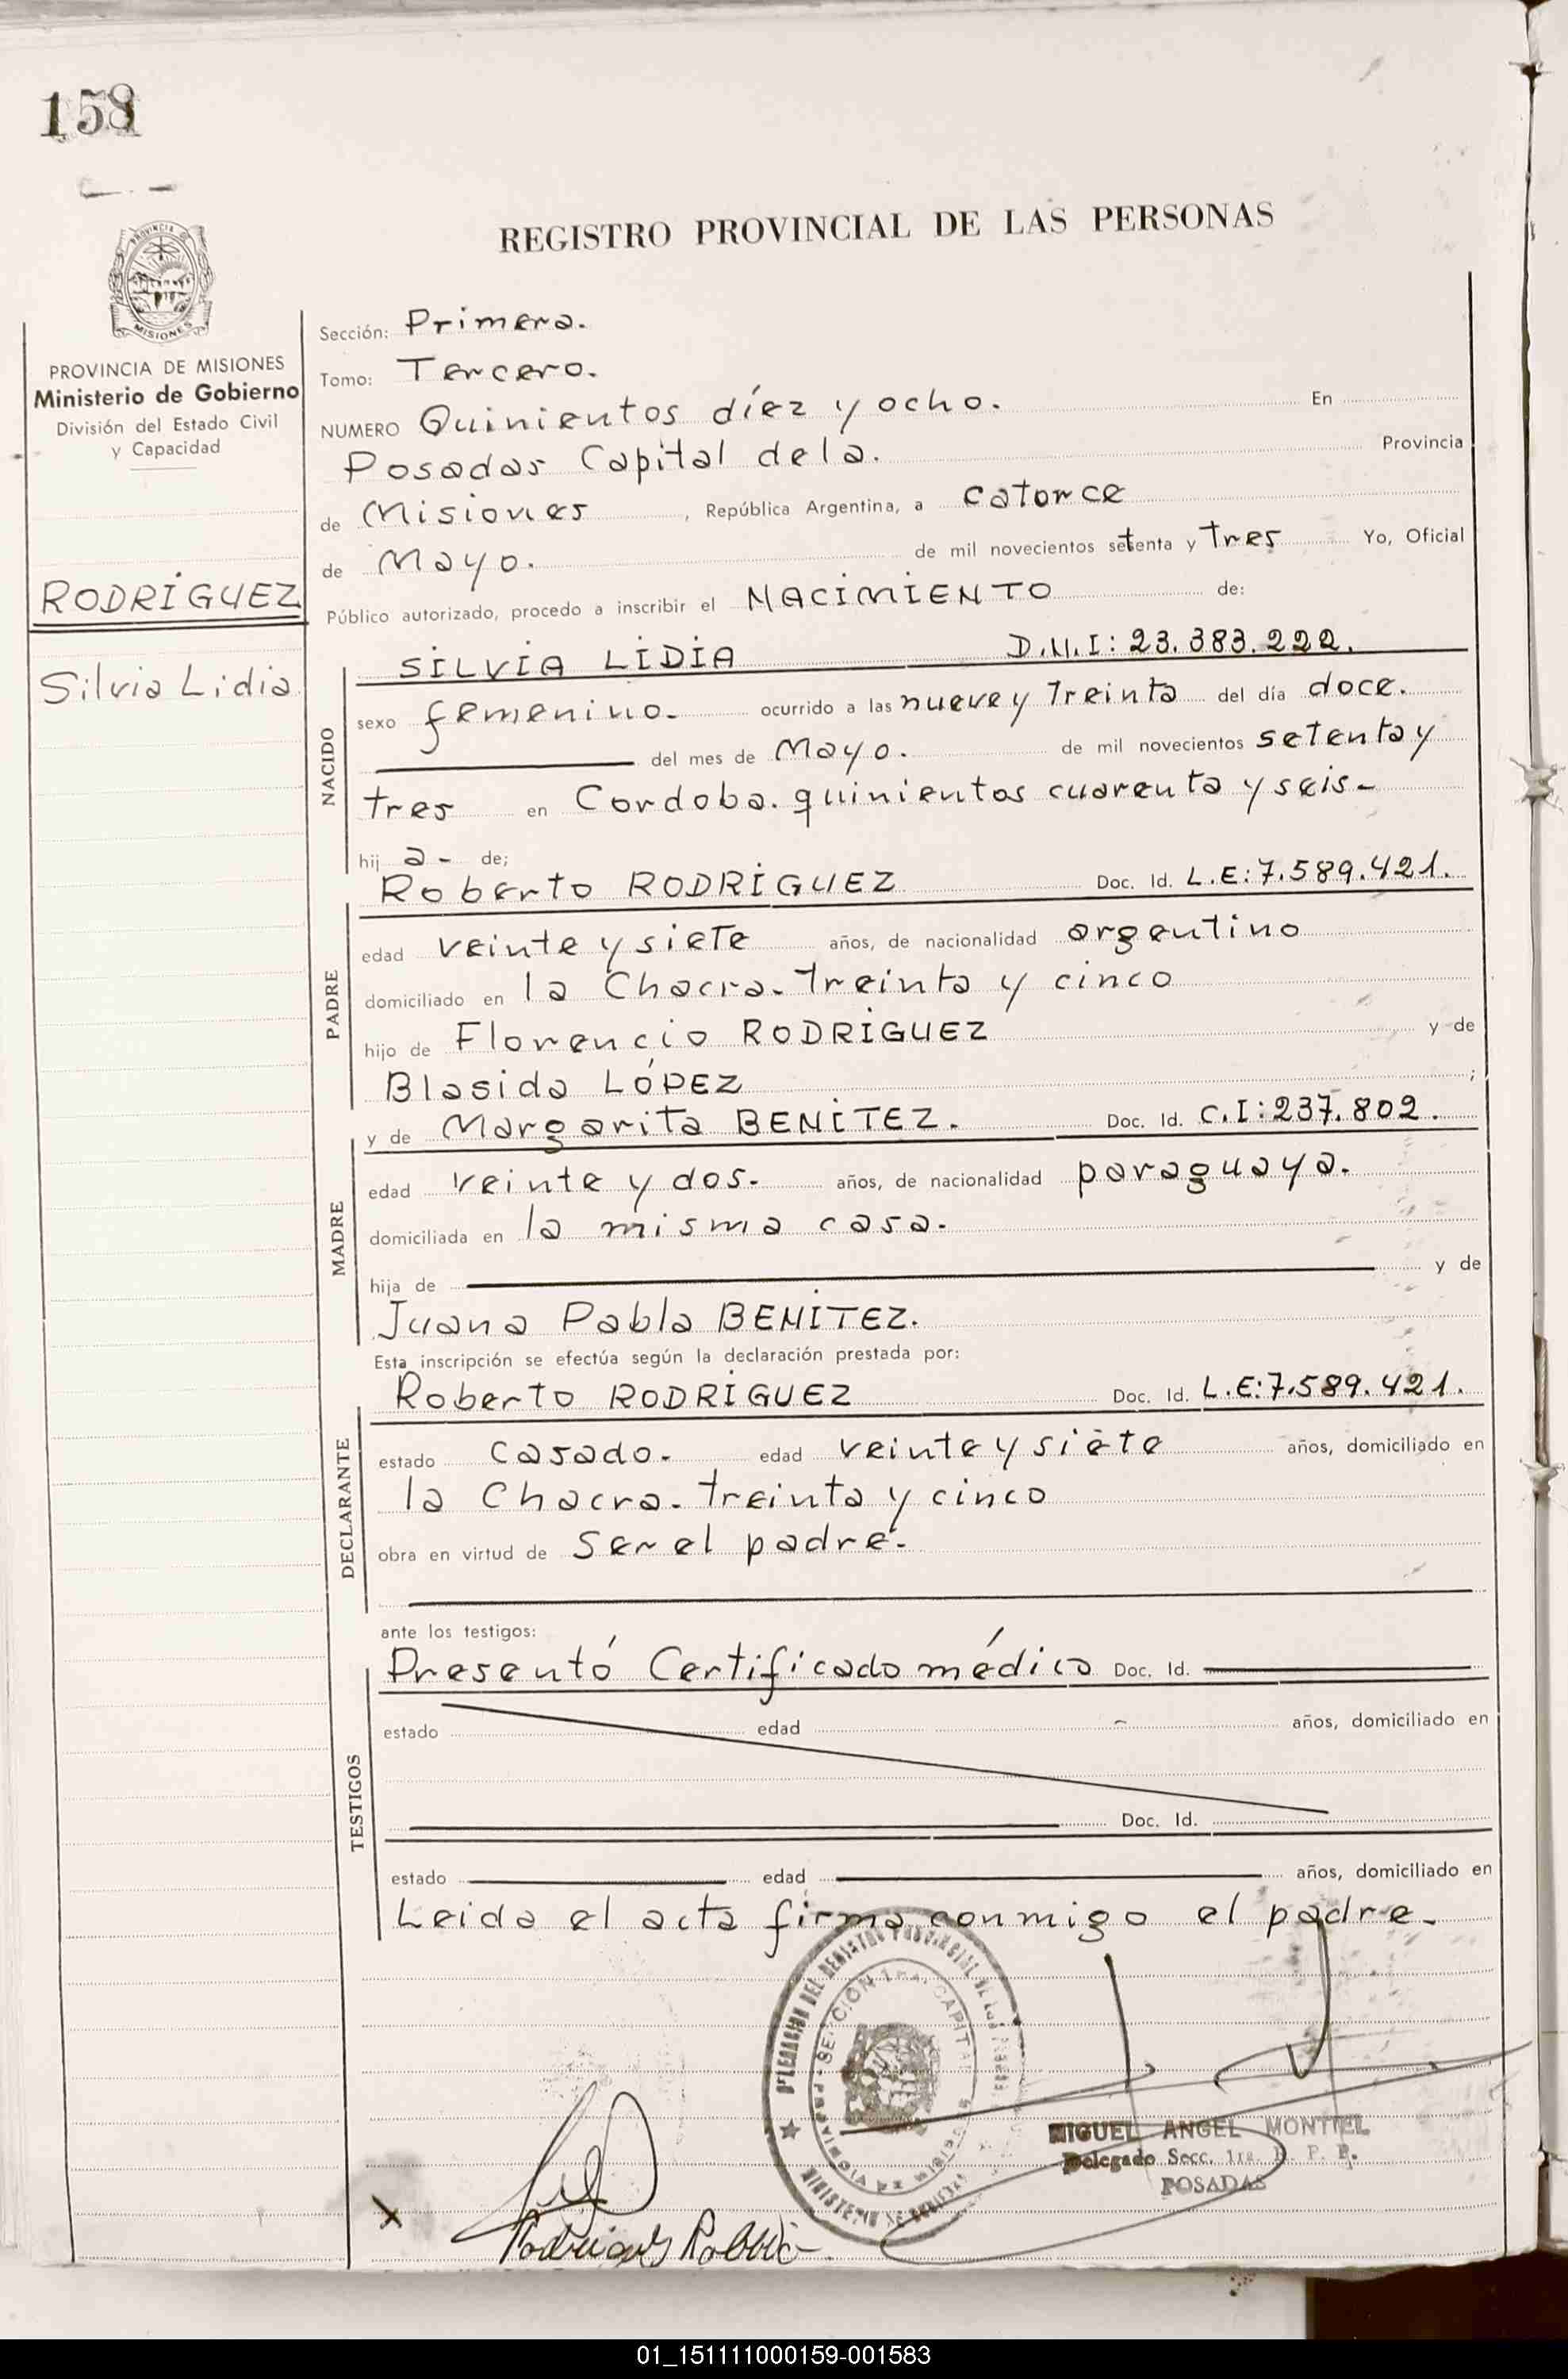 158
REGISTRO PROVINCIAL DE LAS PERSONAS
PROVINCIA DE MISIONES
Ministerio de Gobierno
División del Estado Civil
y Capacidad
RODRÍGUEZ
Silvia Lidia
Sección: Primera.
Tomo: Tercero.
NUMERO Quinientos díez y ocho. En
Posadas Capital de la. Provincia
de Misiones, República Argentina, a catorce
de Mayo. de mil novecientos setenta y tres Yo, Oficial
Público autorizado, procedo a inscribir el NACIMIENTO de:
NACIDO
SILVIA LIDIA D.N.I: 23.383.222.
sexo femenino. ocurrido a las nueve y treinta del día doce.
del mes de Mayo. de mil novecientos setenta y
tres en Cordoba. quinientos cuarenta y seis-
hij a- de;
PADRE
Roberto RODRÍGUEZ Doc. Id. L.E:7.589.421.
edad veinte y siete años, de nacionalidad argentino
domiciliado en la Chacra. treinta y cinco
hijo de Florencio RODRÍGUEZ y de
Blasida LÓPEZ ;
MADRE
y de Margarita BENÍTEZ. Doc. Id. C.I:237.802.
edad veinte y dos. años, de nacionalidad paraguaya.
domiciliada en la misma casa.
hija de y de
Juana Pabla BENÍTEZ.
Esta inscripción se efectúa según la declaración prestada por:
DECLARANTE
Roberto RODRÍGUEZ Doc. Id. L.E:7.589.421.
estado casado. edad veinte y siete años, domiciliado en
la Chacra. treinta y cinco
obra en virtud de ser el padre.
ante los testigos:
TESTIGOS
Presentó Certificado médico Doc. Id.
estado edad años, domiciliado en
Doc. Id.
estado edad años, domiciliado en
Leida el acta firma conmigo el padre.
MIGUEL ANGEL MONTIEL
Delegado Secc. 1ra. R. P. P.
POSADAS
01_151111000159-001583